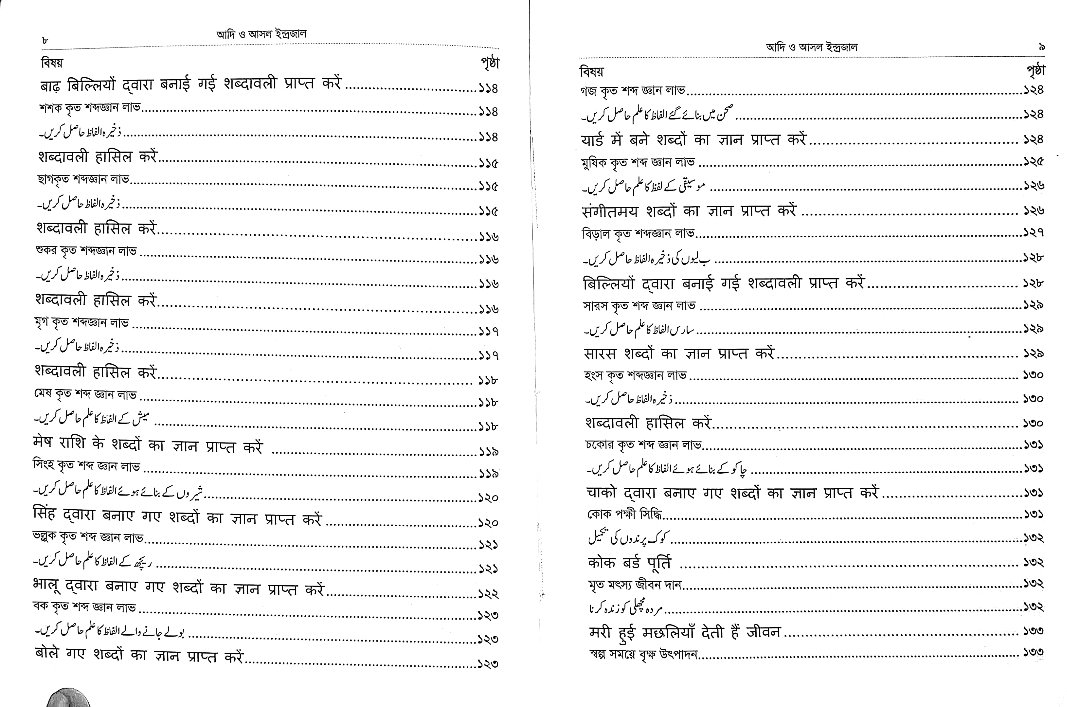 ৮
আদি ও আসল ইন্দ্রজাল
বিষয় পৃষ্ঠা
बाढ़ बिल्लियों द्वारा बनाई गई शब्दावली प्राप्त करें ...১১৪
শশক কৃত শব্দজ্ঞান লাভ...১১৪
ذخیرہ الفاظ حاصل کریں۔...১১৪
शब्दावली हासिल करें...১১৫
ছাগকৃত শব্দজ্ঞান লাভ...১১৫
ذخیرہ الفاظ حاصل کریں۔...১১৫
शब्दावली हासिल करें...১১৬
শুকর কৃত শব্দজ্ঞান লাভ ...১১৬
ذخیرہ الفاظ حاصل کریں۔...১১৬
शब्दावली हासिल करें...১১৬
মৃগ কৃত শব্দজ্ঞান লাভ ...১১৭
ذخیرہ الفاظ حاصل کریں۔...১১৭
शब्दावली हासिल करें...১১৮
মেষ কৃত শব্দ জ্ঞান লাভ ...১১৮
میش کے الفاظ کا علم حاصل کریں۔ ...১১৮
मेष राशि के शब्दों का ज्ञान प्राप्त करें ...১১৯
সিংহ কৃত শব্দ জ্ঞান লাভ ...১১৯
شیروں کے بنائے ہوئے الفاظ کا علم حاصل کریں۔...১২০
सिंह द्वारा बनाए गए शब्दों का ज्ञान प्राप्त करें ...১২০
ভল্লুক কৃত শব্দ জ্ঞান লাভ...১২১
ریچھ کے الفاظ کا علم حاصل کریں۔ ...১২১
भालू द्वारा बनाए गए शब्दों का ज्ञान प्राप्त करें...১২২
বক কৃত শব্দ জ্ঞান লাভ ...১২৩
بولے جانے والے الفاظ کا علم حاصل کریں۔ ...১২৩
बोले गए शब्दों का ज्ञान प्राप्त करें...১২৩
আদি ও আসল ইন্দ্রজাল
৯
বিষয় পৃষ্ঠা
গজ কৃত শব্দ জ্ঞান লাভ...১২৪
صحن میں بنائے گئے الفاظ کا علم حاصل کریں۔...১২৪
यार्ड में बने शब्दों का ज्ञान प्राप्त करें ...১২৪
মুষিক কৃত শব্দ জ্ঞান লাভ ...১২৫
موسیقی کے لفظ کا علم حاصل کریں۔ ...১২৬
संगीतमय शब्दों का ज्ञान प्राप्त करें ...১২৬
বিড়াল কৃত শব্দজ্ঞান লাভ...১২৭
بلیوں کی ذخیرہ الفاظ حاصل کریں۔ ...১২৮
बिल्लियों द्वारा बनाई गई शब्दावली प्राप्त करें ...১২৮
সারস কৃত শব্দ জ্ঞান লাভ ...১২৯
سارس الفاظ کا علم حاصل کریں۔ ...১২৯
सारस शब्दों का ज्ञान प्राप्त करें...১২৯
হংস কৃত শব্দজ্ঞান লাভ ...১৩০
ذخیرہ الفاظ حاصل کریں۔ ...১৩০
शब्दावली हासिल करें...১৩০
চকোর কৃত শব্দ জ্ঞান লাভ...১৩১
چاکو کے بنائے ہوئے الفاظ کا علم حاصل کریں۔ ...১৩১
चाको द्वारा बनाए गए शब्दों का ज्ञान प्राप्त करें ...১৩১
কোক পক্ষী সিদ্ধি...১৩১
کوک پرندوں کی تکمیل ...১৩২
कोक बर्ड पूर्ति ...১৩২
মৃত মৎস্য জীবন দান...১৩২
مردہ مچھلی کو زندہ کرنا...১৩২
मरी हुई मछलियाँ देती हैं जीवन ...১৩৩
স্বল্প সময়ে বৃক্ষ উৎপাদন...১৩৩